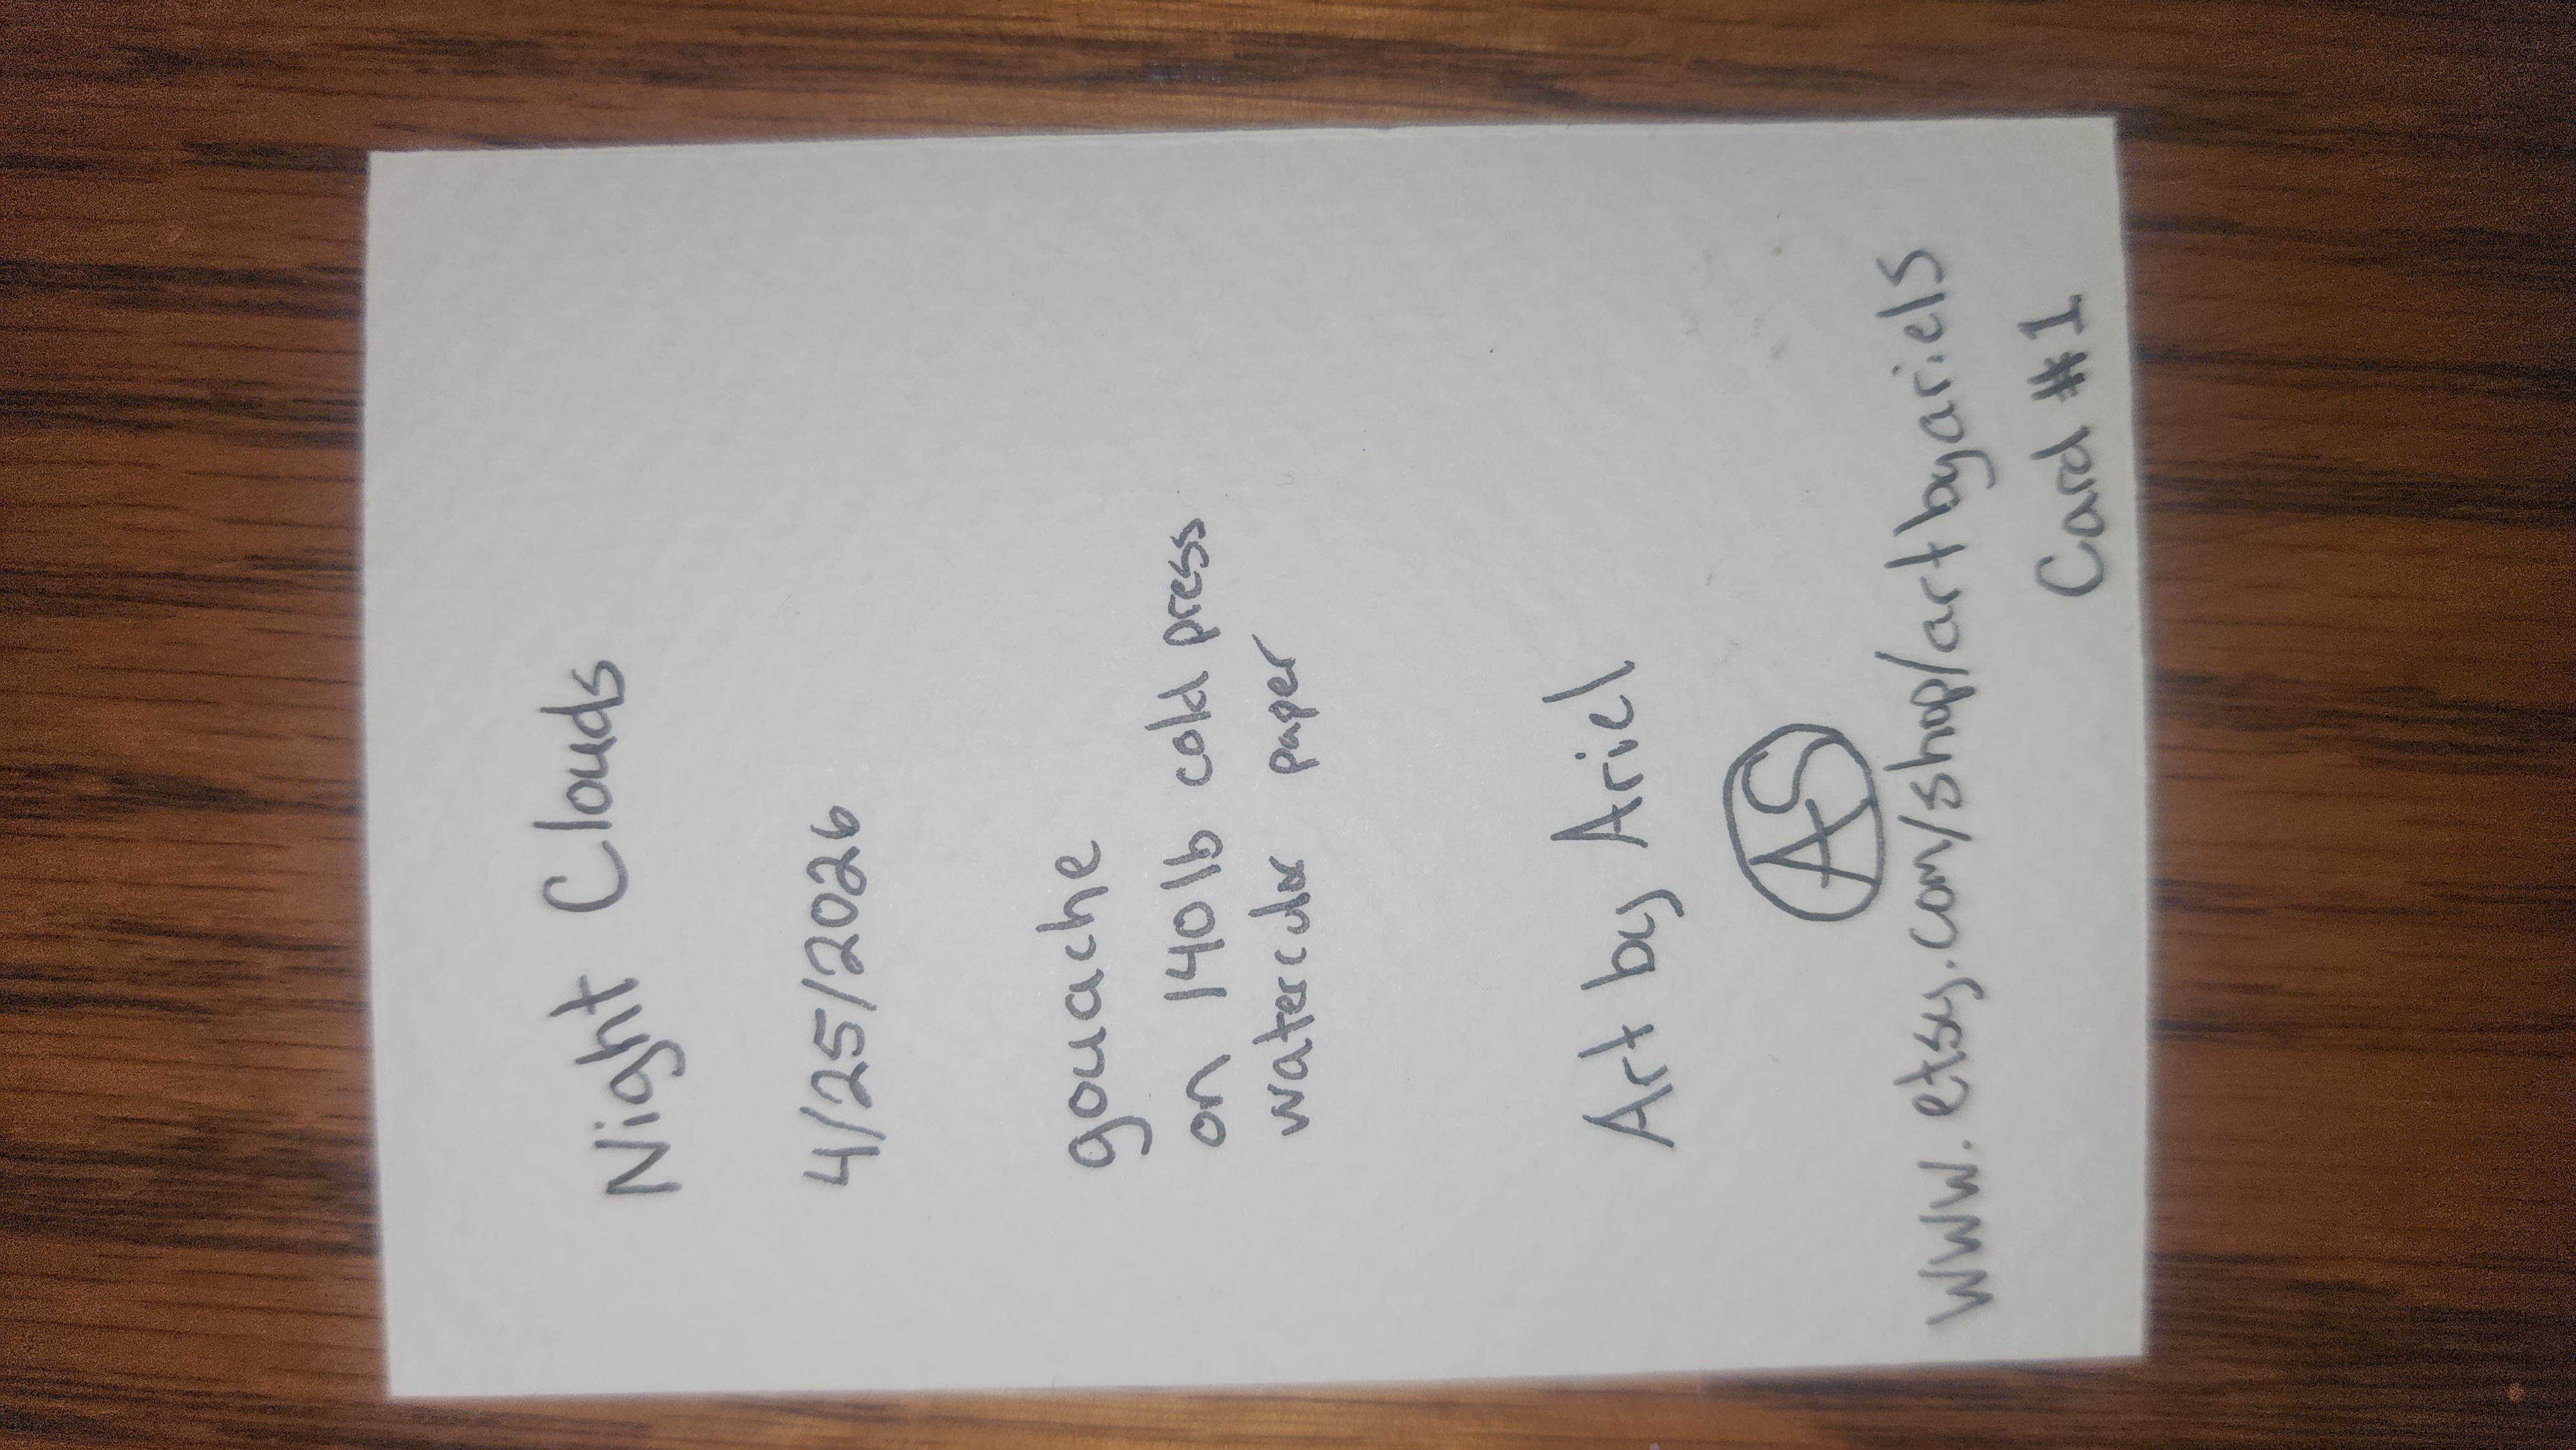 Night Clouds
4/25/2026
gouache
on 140 lb cold press
watercolor paper
Art by Ariel
AS
www.etsy.com/shop/artbyarielS
Card #1